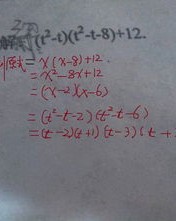 (t²-t)(t²-t-8)+12.
原式= x(x-8)+12.
= x²-8x+12
= (x-2)(x-6)
= (t²-t-2)(t²-t-6)
= (t-2)(t+1)(t-3)(t+